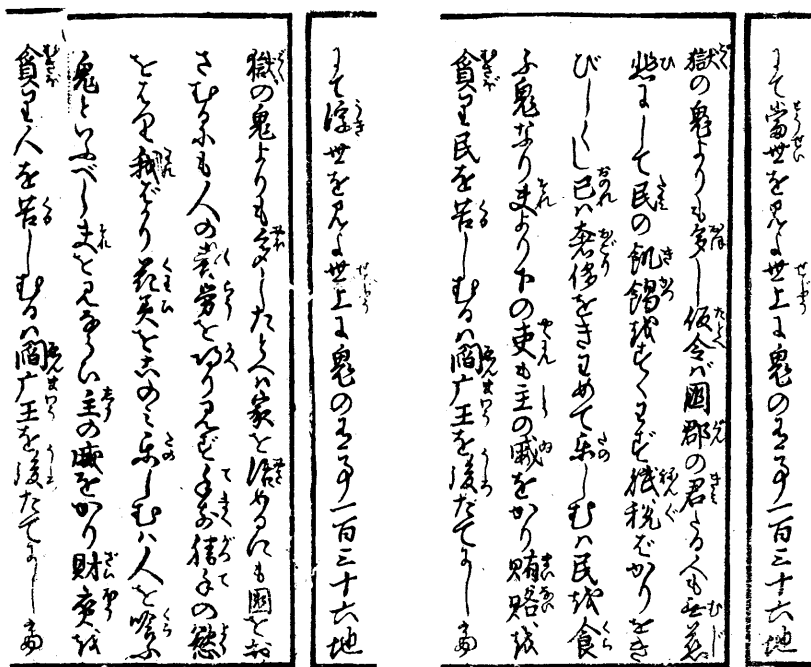 にて當世を見るに世上に鬼の有事一百三十六地
獄の鬼よりも多し仮令バ國郡の君たる人も無慈
悲にして民の飢餲をすくわず税ばかりをき
びしくし己ハ奢侈をきわめて楽しむハ民を食
ふ鬼なり夫より下の吏も主の威をかり賄賂を
貪り民を苦しむるハ閻广王を後たてにし富
にて浮世を見るに世上に鬼の有事一百三十六地
獄の鬼よりも多したとへバ家を治めるにも國をお
さむるにも人の労をかへり見ず手前勝手の慾
をはり我ばかりをこのミ楽しむハ人を喰ふ
鬼といふべし夫を見ならい主の威をかり財宝を
貪り人を苦しむるハ閻广王を後たてにし富